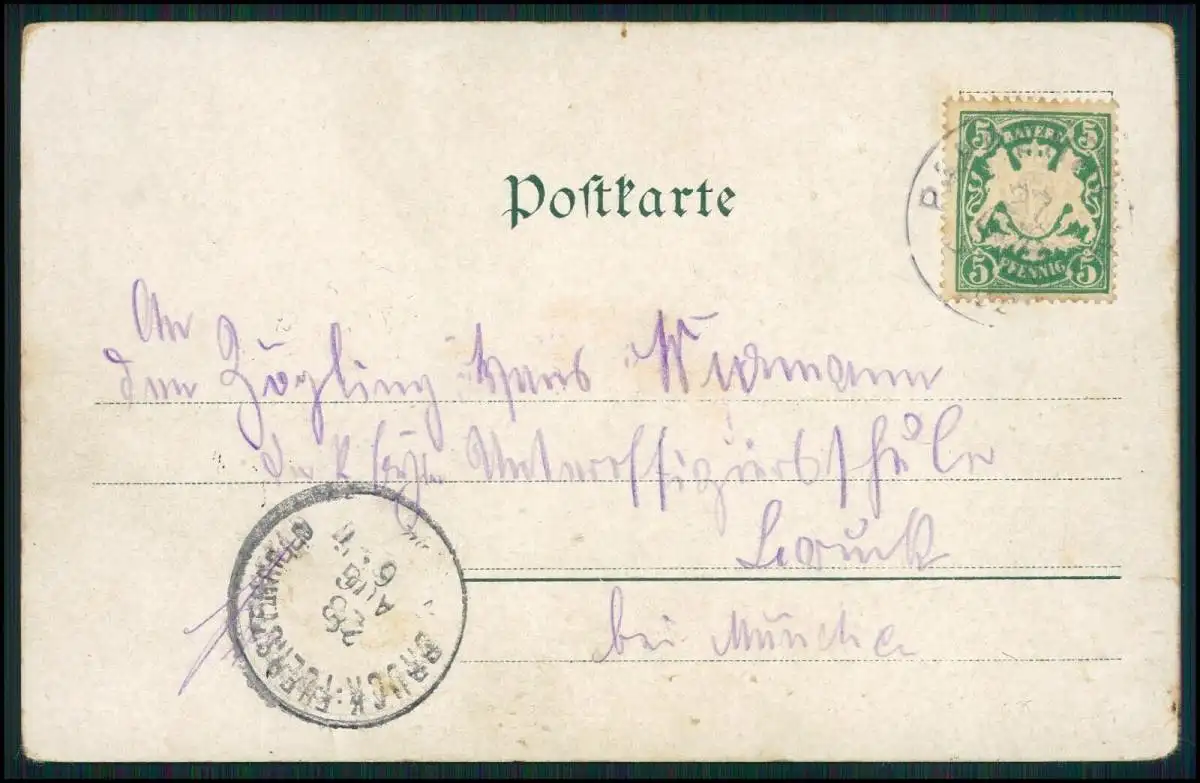 Postkarte
5 BAYERN 5
5 PFENNIG 5
An
den Zögling Hans Widmann
der K Unteroffiziersschule
Bruck
bei München
BRUCK-FUERSTENFELD
28
AUG